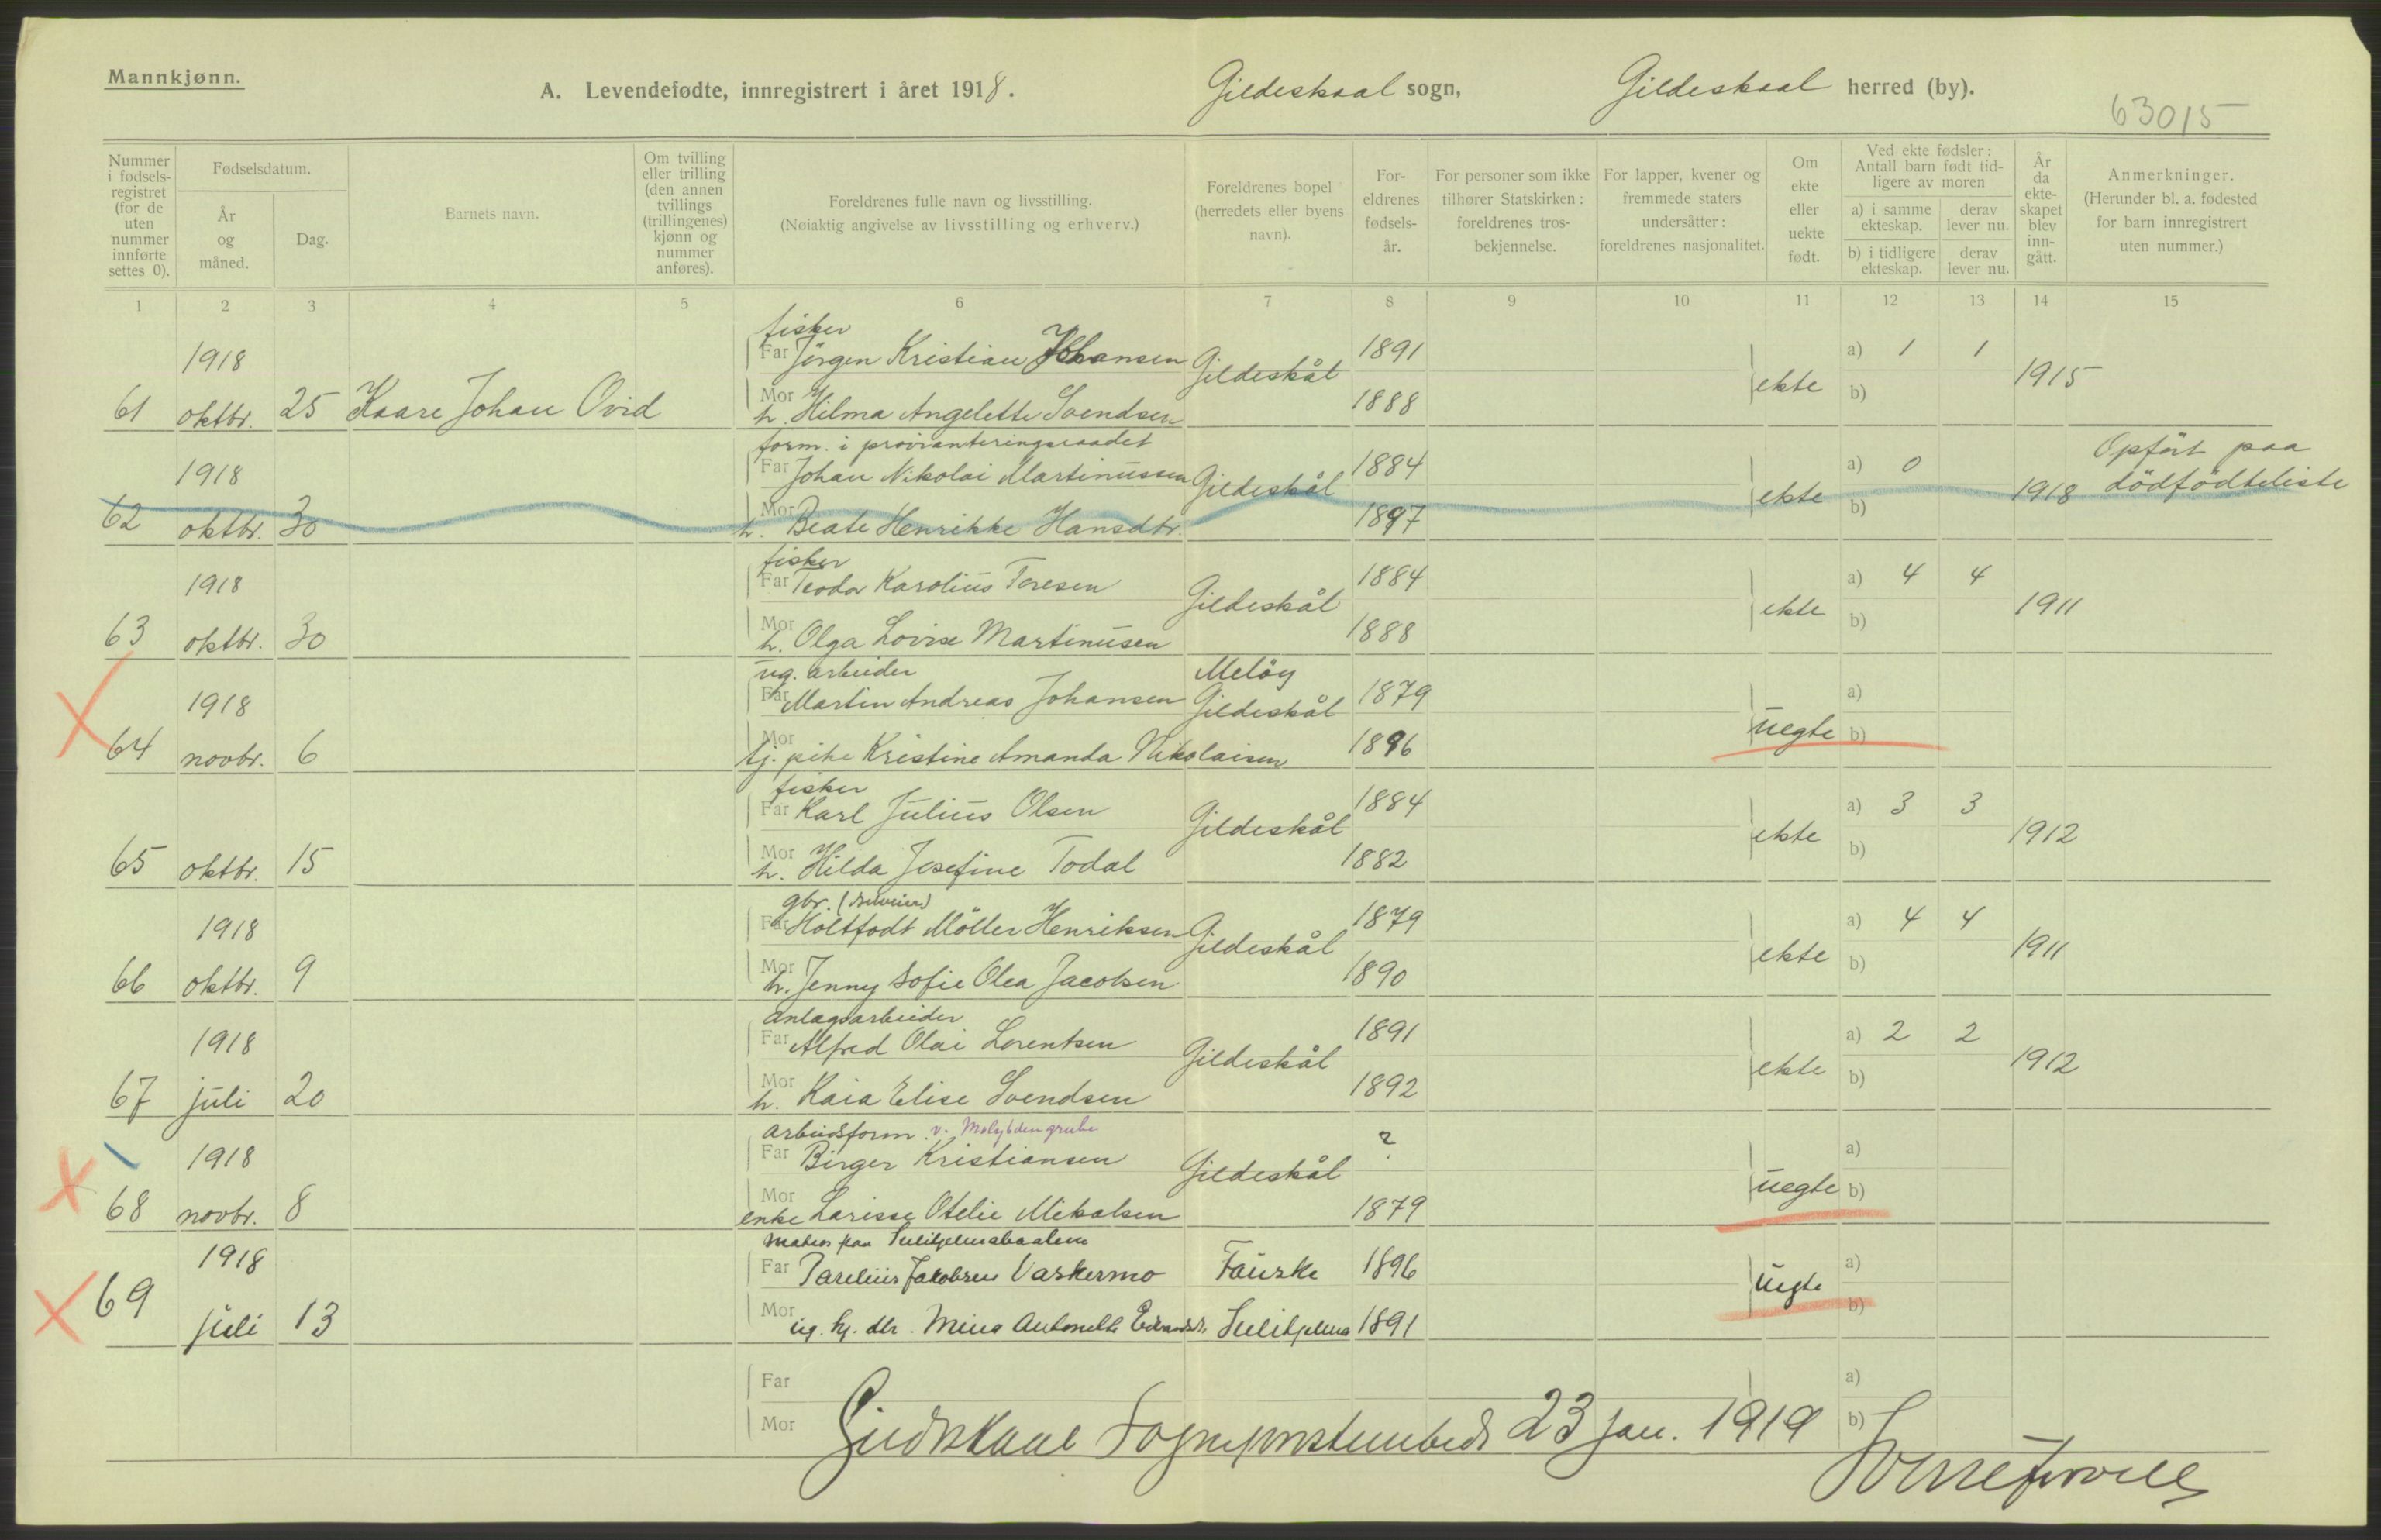 Mannkjønn.
A. Levendefødte, innregistrert i året 1918.
Gildeskaal sogn,
Gildeskaal herred (by).
63015
Nummer i fødsels-registret (for de uten nummer innførte settes 0).
Fødselsdatum.
År og måned.
Dag.
Barnets navn.
Om tvilling eller trilling (den annen tvillings (trillingenes) kjønn og nummer anføres).
Foreldrenes fulle navn og livsstilling.
(Nøiaktig angivelse av livsstilling og erhverv.)
Foreldrenes bopel (herredets eller byens navn).
For-eldrenes fødsels-år.
For personer som ikke tilhører Statskirken: foreldrenes tros-bekjennelse.
For lapper, kvener og fremmede staters undersåtter: foreldrenes nasjonalitet.
Om ekte eller uekte født.
Ved ekte fødsler: Antall barn født tid-ligere av moren
a) i samme ekteskap.
derav lever nu.
b) i tidligere ekteskap.
derav lever nu.
År da ekte-skapet blev inn-gått.
Anmerkninger.
(Herunder bl. a. fødested for barn innregistrert uten nummer.)
1 2 3 4 5 6 7 8 9 10 11 12 13 14 15
fisker
1918 Far Jörgen Kristian Johansen Gildeskål 1891 ekte a) 1 1 1915
61 oktbr. 25 Kaare Johan Ovid Mor h. Hilma Angelette Svendsen 1888 b)
form. i provianteringsraadet
1918 Far Johan Nikolai Martinussen Gildeskål 1884 ekte a) 0 1918 Opfört paa dödfödteliste
62 oktbr. 30 Mor h. Beate Henrikke Hansdtr. 1897 b)
fisker
1918 Far Teodor Karolius Toresen Gildeskål 1884 ekte a) 4 4 1911
63 oktbr. 30 Mor h. Olga Lovise Martinusen 1888 b)
ug. arbeider Melöy
1918 Far Martin Andreas Johansen Gildeskål 1879 uegte a)
64 novbr. 6 Mor tj. pike Kristine Amanda Nikolaisen 1896 b)
fisker
Far Karl Julius Olsen Gildeskål 1884 ekte a) 3 3 1912
65 oktbr. 15 Mor h. Hilda Josefine Todal 1882 b)
gbr. (selveier)
1918 Far Holtfodt Möller Henriksen Gildeskål 1879 ekte a) 4 4 1911
66 oktbr. 9 Mor h. Jenny Sofie Olea Jacobsen 1890 b)
anlægsarbeider
1918 Far Alfred Olai Lorentsen Gildeskål 1891 ekte a) 2 2 1912
67 juli 20 Mor h. Kaia Elise Svendsen 1892 b)
arbeidsform. v. Molybdengrube
1918 Far Birger Kristiansen Gildeskål ? uegte a)
68 novbr. 8 Mor enke Larisse Otelie Mikalsen 1879 b)
paa Sulitjelmabaalen
1918 Far Parelius Jakobsen Vaskermo Fauske 1896 uegte a)
69 juli 13 Mor ug. Mina Antonette Sulitjelma 1891 b)
Far a)
Mor b)
Gildeskaal Sogneprestembede 23 jan. 1919